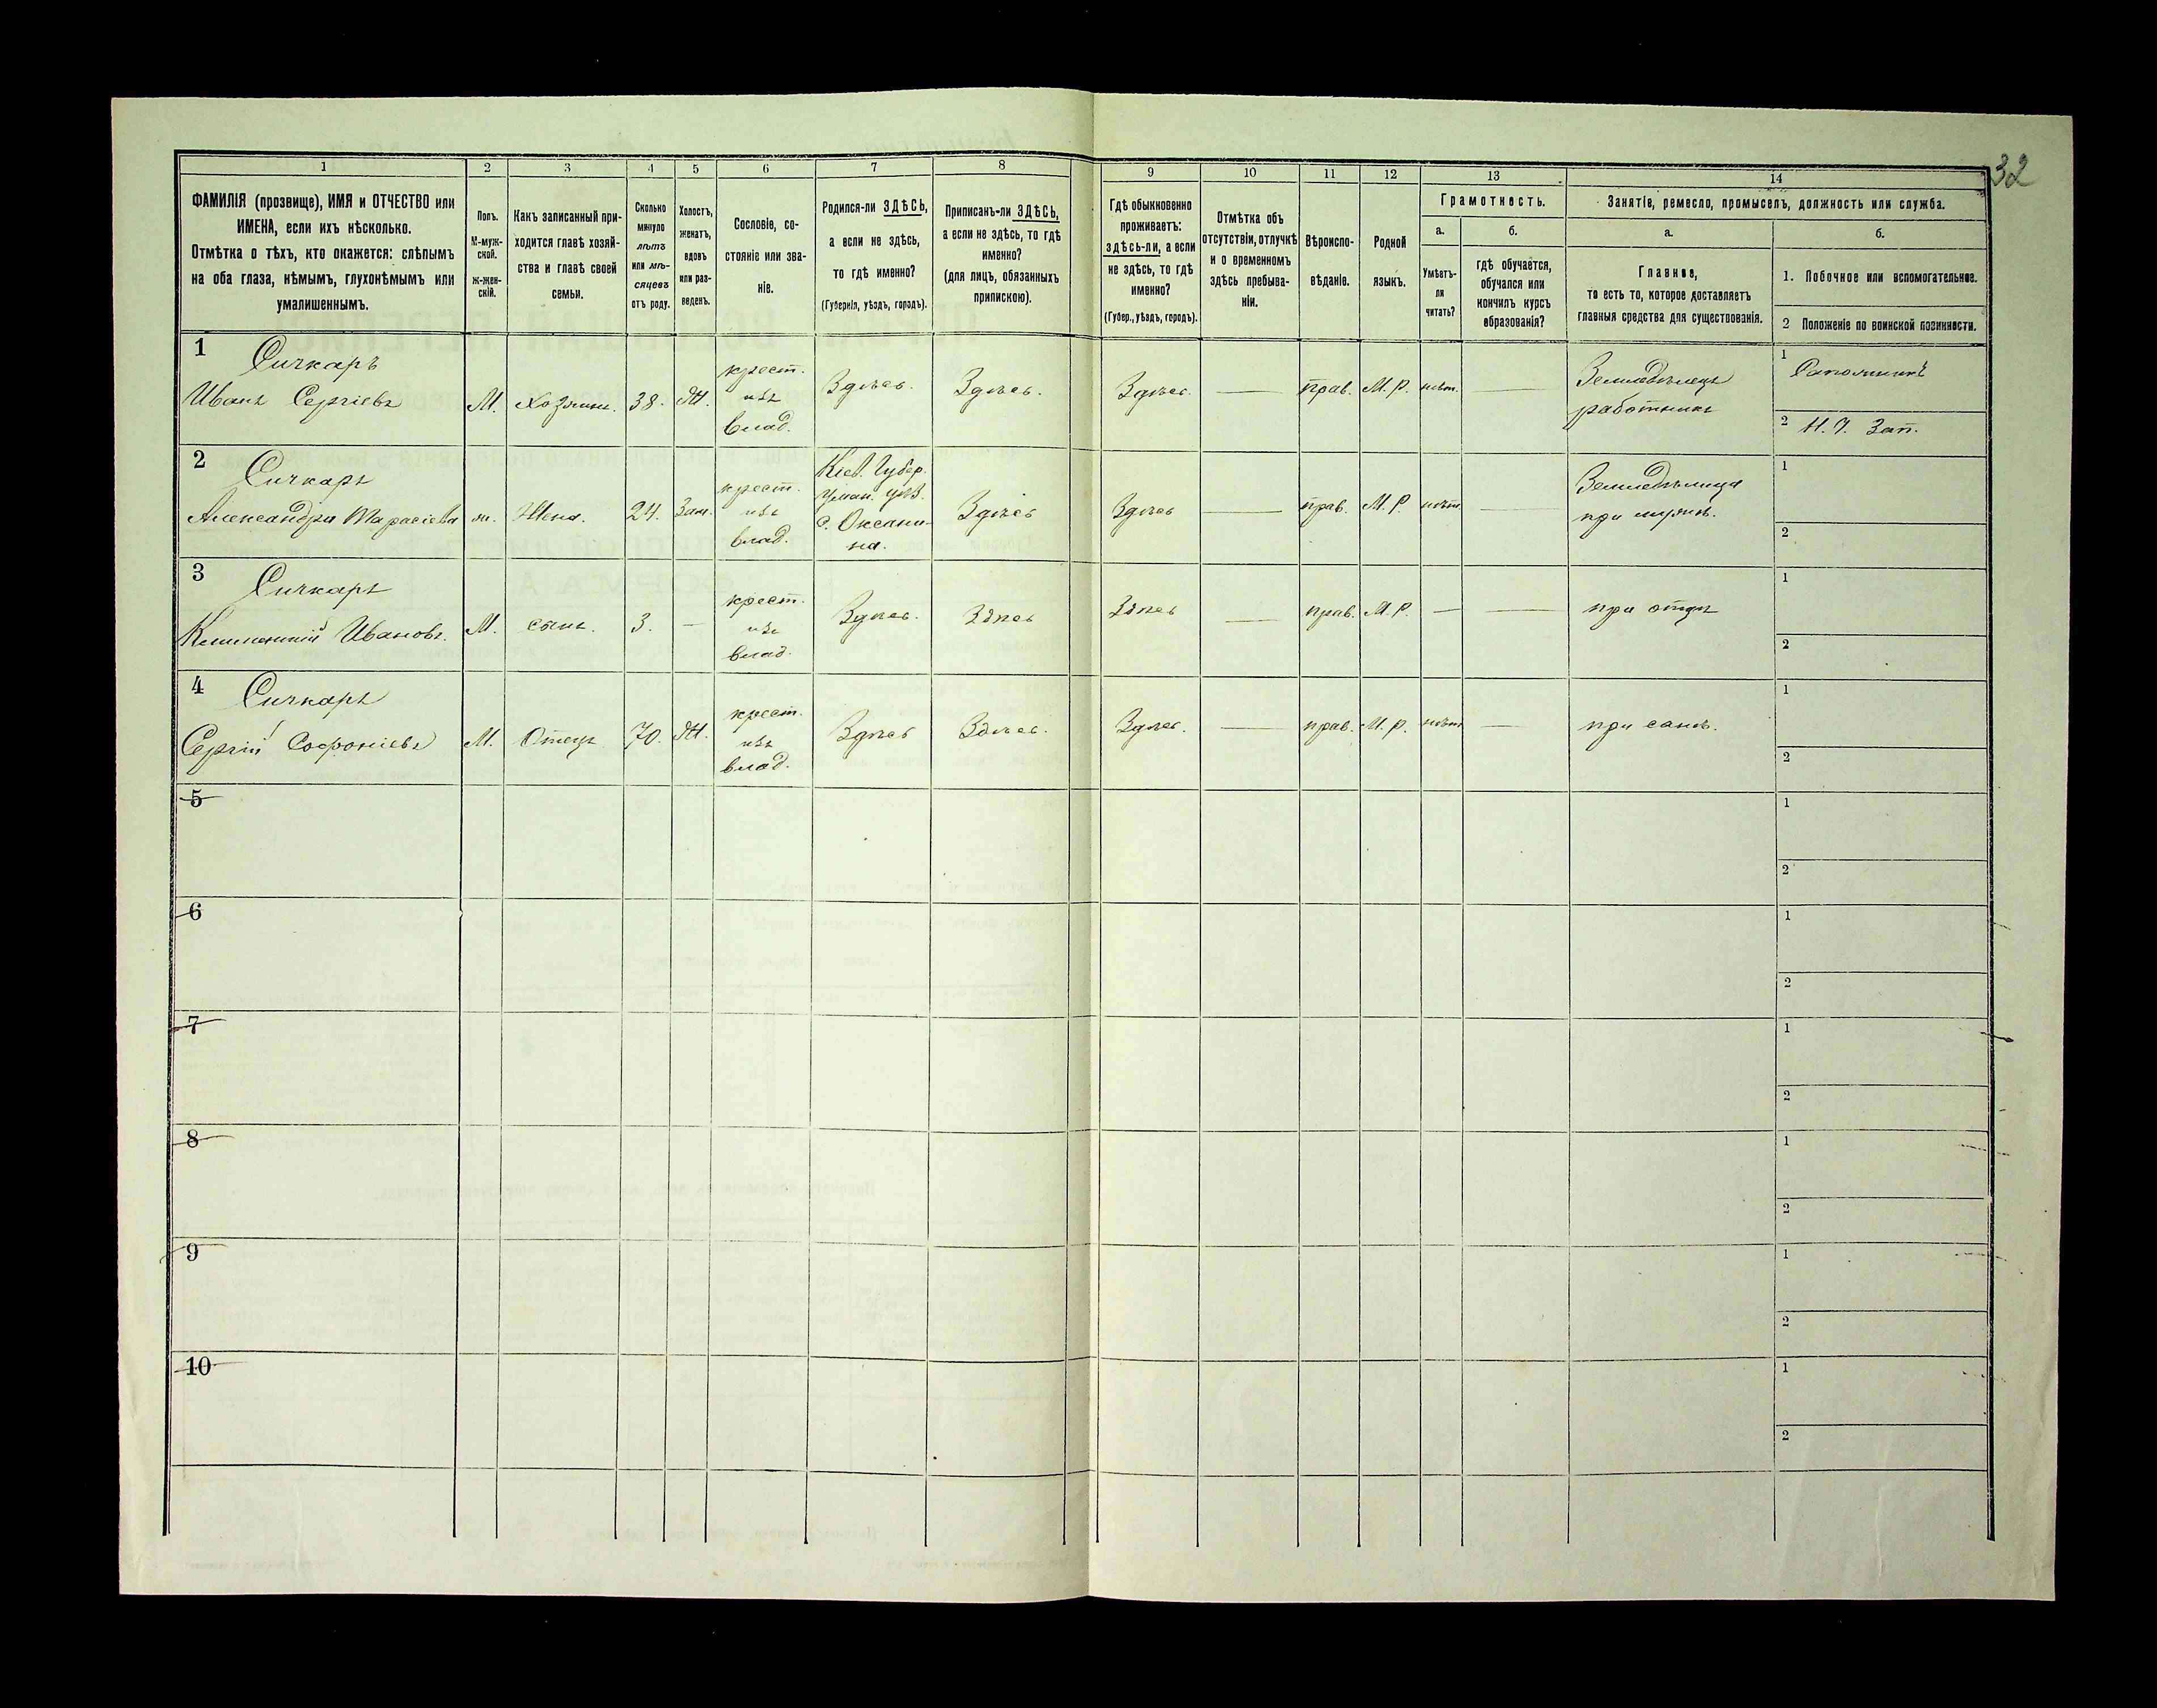 32
1 2 3 4 5 6 7 8 9 10 11 12 13 14
ФАМИЛІЯ (прозвище), ИМЯ и ОТЧЕСТВО или
ИМЕНА, если ихъ нѣсколько.
Отмѣтка о тѣхъ, кто окажется: слѣпымъ
на оба глаза, нѣмымъ, глухонѣмымъ или
умалишеннымъ.
Полъ.
М-муж-
ской.
Ж-жен-
скій.
Какъ записанный при-
ходится главѣ хозяй-
ства и главѣ своей
семьи.
Сколько
минуло
лѣтъ
или мѣ-
сяцевъ
отъ роду.
Холостъ,
женатъ,
вдовъ
или раз-
веденъ.
Сословіе, со-
стояніе или зва-
ніе.
Родился-ли ЗДѢСЬ,
а если не здѣсь,
то гдѣ именно?
(Губернія, уѣздъ, городъ).
Приписанъ-ли ЗДѢСЬ,
а если не здѣсь, то гдѣ
именно?
(для лицъ, обязанныхъ
припискою).
Гдѣ обыкновенно
проживаетъ:
здѣсь-ли, а если
не здѣсь, то гдѣ
именно?
(Губер., уѣздъ, городъ).
Отмѣтка объ
отсутствіи, отлучкѣ
и о временномъ
здѣсь пребыва-
ніи.
Вѣроиспо-
вѣданіе.
Родной
языкъ.
Грамотность.
а.
Умѣетъ-
ли
читать?
б.
гдѣ обучается,
обучался или
кончилъ курсъ
образованія?
Занятіе, ремесло, промыселъ, должность или служба.
а.
Главное,
то есть то, которое доставляетъ
главныя средства для существованія.
б.
1. Побочное или вспомогательное.
2 Положеніе по воинской повинности.
1
Сичкаръ
Иванъ Сергіевъ
М.
Хозяин.
38.
Ж.
крест.
изъ
влад.
Здѣсь.
Здѣсь.
Здѣсь.
—
прав.
М. Р.
нѣт.
—
Земледѣлецъ
работникъ
1
Сапожникъ
2 Н. Ч. Зап.
2
Сичкаръ
Александра Тарасіева
ж.
Жена.
24.
Зам.
крест.
изъ
влад.
Кіев. Губер.
Уман. уѣз.
с. Оксани-
на.
Здѣсь
Здѣсь
—
прав.
М. Р.
нѣт.
—
Земледѣлица
при мужѣ.
1
2
3
Сичкаръ
Климентій Ивановъ.
М.
сынъ.
3.
—
крест.
изъ
влад.
Здѣсь.
Здѣсь
Здѣсь
—
прав.
М. Р.
—
—
при отцѣ
1
2
4
Сичкаръ
Сергій Софроніевъ
М.
Отецъ
70.
Ж.
крест.
изъ
влад.
Здѣсь
Здѣсь.
Здѣсь.
—
прав.
М. Р.
нѣт.
—
при сынѣ.
1
2
5
1
2
6
1
2
7
1
2
8
1
2
9
1
2
10
1
2